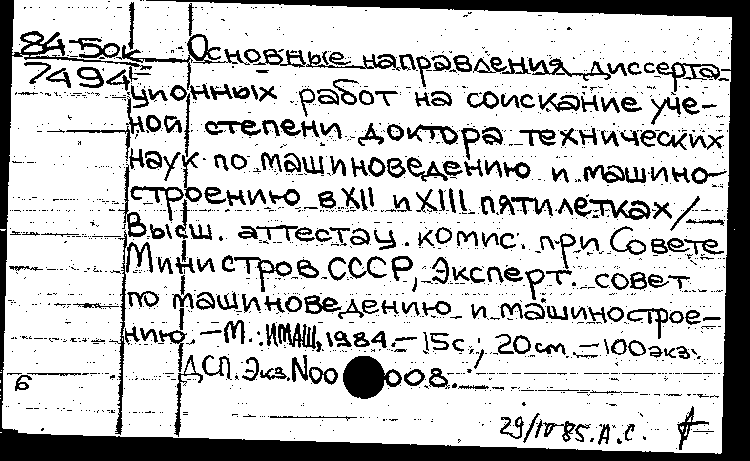 84-5ок Основные направления диссерта-
7494= ционных работ на соискание уче-
ной степени доктора технических
наук по машиноведению и машино-
строению в XII и XIII пятилетках/
Высш. аттестац. комис. при Совете
Министров СССР, Эксперт. совет
по машиноведению и машинострое-
нию. – М.: ИМАШ, 1984. – 15 с.; 20 cm. – 100 экз.
ДСП. Экз. N00 008.
6
29/IV 85. А.С.